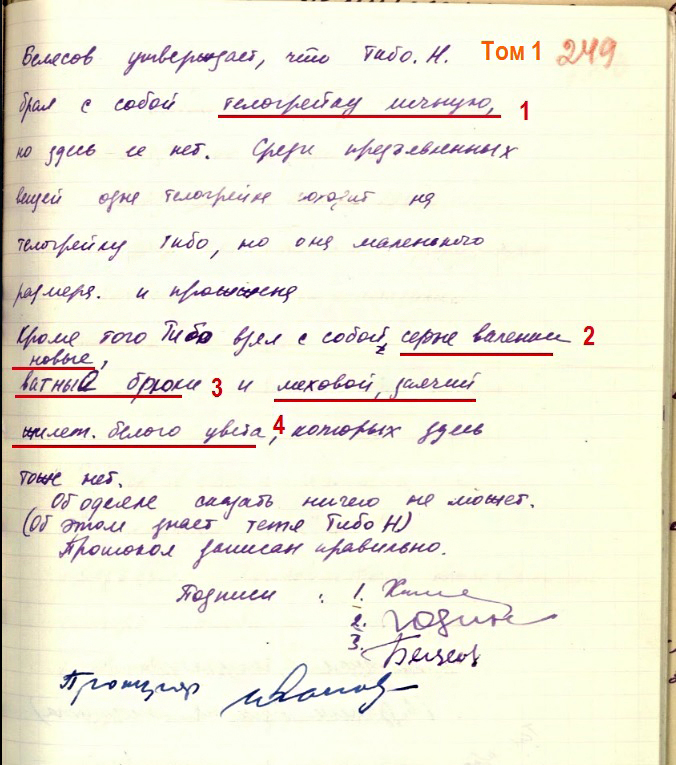 Том 1 249
Белесов утверждает, что Тибо. Н.
брал с собой телогрейку личную, 1
но здесь ее нет. Среди предъявленных
вещей одна телогрейка походит на
телогрейку Тибо, но она маленького
размера. и прошжена
Кроме того Тибо взял с собой, серые валенки 2
новые,
ватный брюки 3 и меховой, заячий
жилет. белого цвета, 4 которых здесь
тоже нет.
Об одеяле сказать ничего не может.
(Об этом знает тетя Тибо Н)
Протокол записан правильно.
Подписи : 1.
2. Годин
3.
Прокурор Иванов